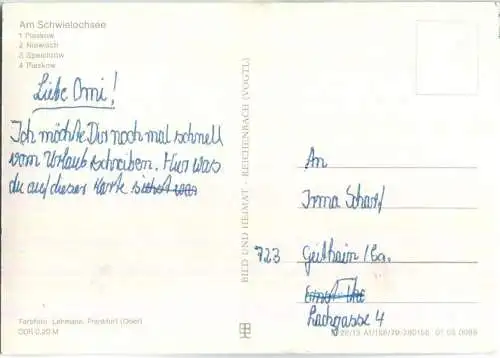 Am Schwielochsee
1 Pieskow
2 Niewisch
3 Speichrow
4 Pieskow
Liebe Omi!
Ich möchte Dir noch mal schnell
vom Urlaub schreiben. Hier was
du auf dieser Karte
BILD UND HEIMAT · REICHENBACH (VOGTL)
An
Irma Scharf
723 Geithain /Ba.
Lachgasse 4
Farbfoto: Lehmann, Frankfurt (Oder)
DDR 0,20 M
01 05 0089